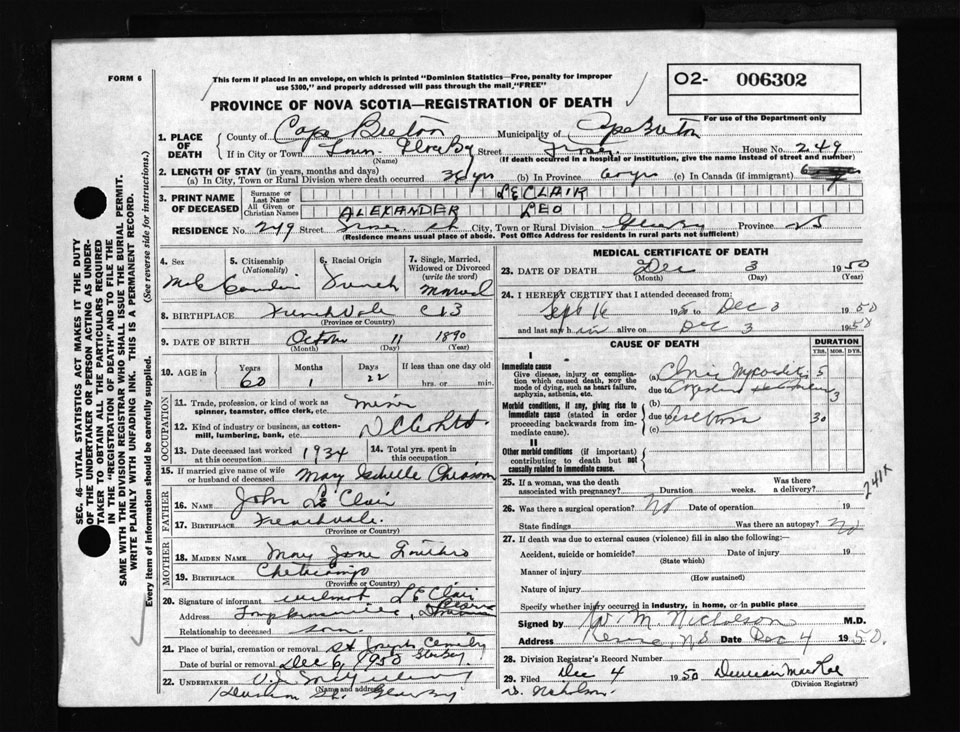 FORM 6
This form if placed in an envelope, on which is printed "Dominion Statistics—Free, penalty for improper
use $300," and properly addressed will pass through the mail, "FREE"
O2- 006302
For use of the Department only
PROVINCE OF NOVA SCOTIA—REGISTRATION OF DEATH
1. PLACE OF DEATH
County of Cape Breton Municipality of Cape Breton
If in City or Town Town Glace Bay Street House No. 249
(Name) (If death occurred in a hospital or institution, give the name instead of street and number)
2. LENGTH OF STAY (in years, months and days)
(a) In City, Town or Rural Division where death occurred (b) In Province 60 yrs (c) In Canada (if immigrant)
3. PRINT NAME OF DECEASED
Surname or Last Name LECLAIR
All Given or Christian Names ALEXANDER LEO
RESIDENCE No. 249 Street City, Town or Rural Division Glace Bay Province NS
(Residence means usual place of abode. Post Office Address for residents in rural parts not sufficient)
4. Sex 5. Citizenship (Nationality) 6. Racial Origin 7. Single, Married, Widowed or Divorced (write the word)
Male Canadian French Married
8. BIRTHPLACE Frenchvale C B
(Province or Country)
9. DATE OF BIRTH October 11 1890
(Month) (Day) (Year)
10. AGE in Years Months Days If less than one day old
60 1 22 hrs. or min.
OCCUPATION
11. Trade, profession, or kind of work as
spinner, teamster, office clerk, etc. Miner
12. Kind of industry or business, as cotton-
mill, lumbering, bank, etc.
13. Date deceased last worked at this occupation 1934 14. Total yrs. spent in this occupation
15. If married give name of wife
or husband of deceased Mary Isabelle Chiasson
FATHER
16. NAME John LeClair
17. BIRTHPLACE Frenchvale
(Province or Country)
MOTHER
18. MAIDEN NAME Mary Jane
19. BIRTHPLACE Cheticamp
(Province or Country)
20. Signature of informant Wilmot LeClair
Address Tompkinsville, Reserve
Relationship to deceased son
21. Place of burial, cremation or removal St Joseph Cemetery Glace Bay
Date of burial or removal Dec 6, 1950
22. UNDERTAKER
(Name and address)
Glace Bay
MEDICAL CERTIFICATE OF DEATH
23. DATE OF DEATH Dec 3 1950
(Month) (Day) (Year)
24. I HEREBY CERTIFY that I attended deceased from:
Sept 16 19 to Dec 3 1950
and last saw him alive on Dec 3 1950
CAUSE OF DEATH DURATION
YRS. MOS. DYS.
I
Immediate cause
Give disease, injury or complica-
tion which caused death, NOT the
mode of dying, such as heart failure,
asphyxia, asthenia, etc.
(a) Chronic Myocarditis 5
due to
3
Morbid conditions, if any, giving rise to
immediate cause (stated in order
proceeding backwards from im-
mediate cause).
(b)
due to 30
(c)
II
Other morbid conditions (if important)
contributing to death but not
causally related to immediate cause.
25. If a woman, was the death
associated with pregnancy? Duration weeks. Was there a delivery?
241x
26. Was there a surgical operation? No Date of operation 19
State findings Was there an autopsy? No
27. If death was due to external causes (violence) fill in also the following:—
Accident, suicide or homicide? Date of injury 19
(State which)
Manner of injury
(How sustained)
Nature of injury
Specify whether injury occurred in industry, in home, or in public place
Signed by W. M. Nicholson M.D.
Address NS Date Dec 4 1950.
28. Division Registrar's Record Number
29. Filed Dec 4 1950 Duncan MacRae
(Division Registrar)
SEC. 46—VITAL STATISTICS ACT MAKES IT THE DUTY
OF THE UNDERTAKER OR PERSON ACTING AS UNDER-
TAKER TO OBTAIN ALL THE PARTICULARS REQUIRED
IN THE "REGISTRATION OF DEATH" AND TO FILE THE
SAME WITH THE DIVISION REGISTRAR WHO SHALL ISSUE THE BURIAL PERMIT.
WRITE PLAINLY WITH UNFADING INK. THIS IS A PERMANENT RECORD.
Every item of information should be carefully supplied. (See reverse side for instructions.)